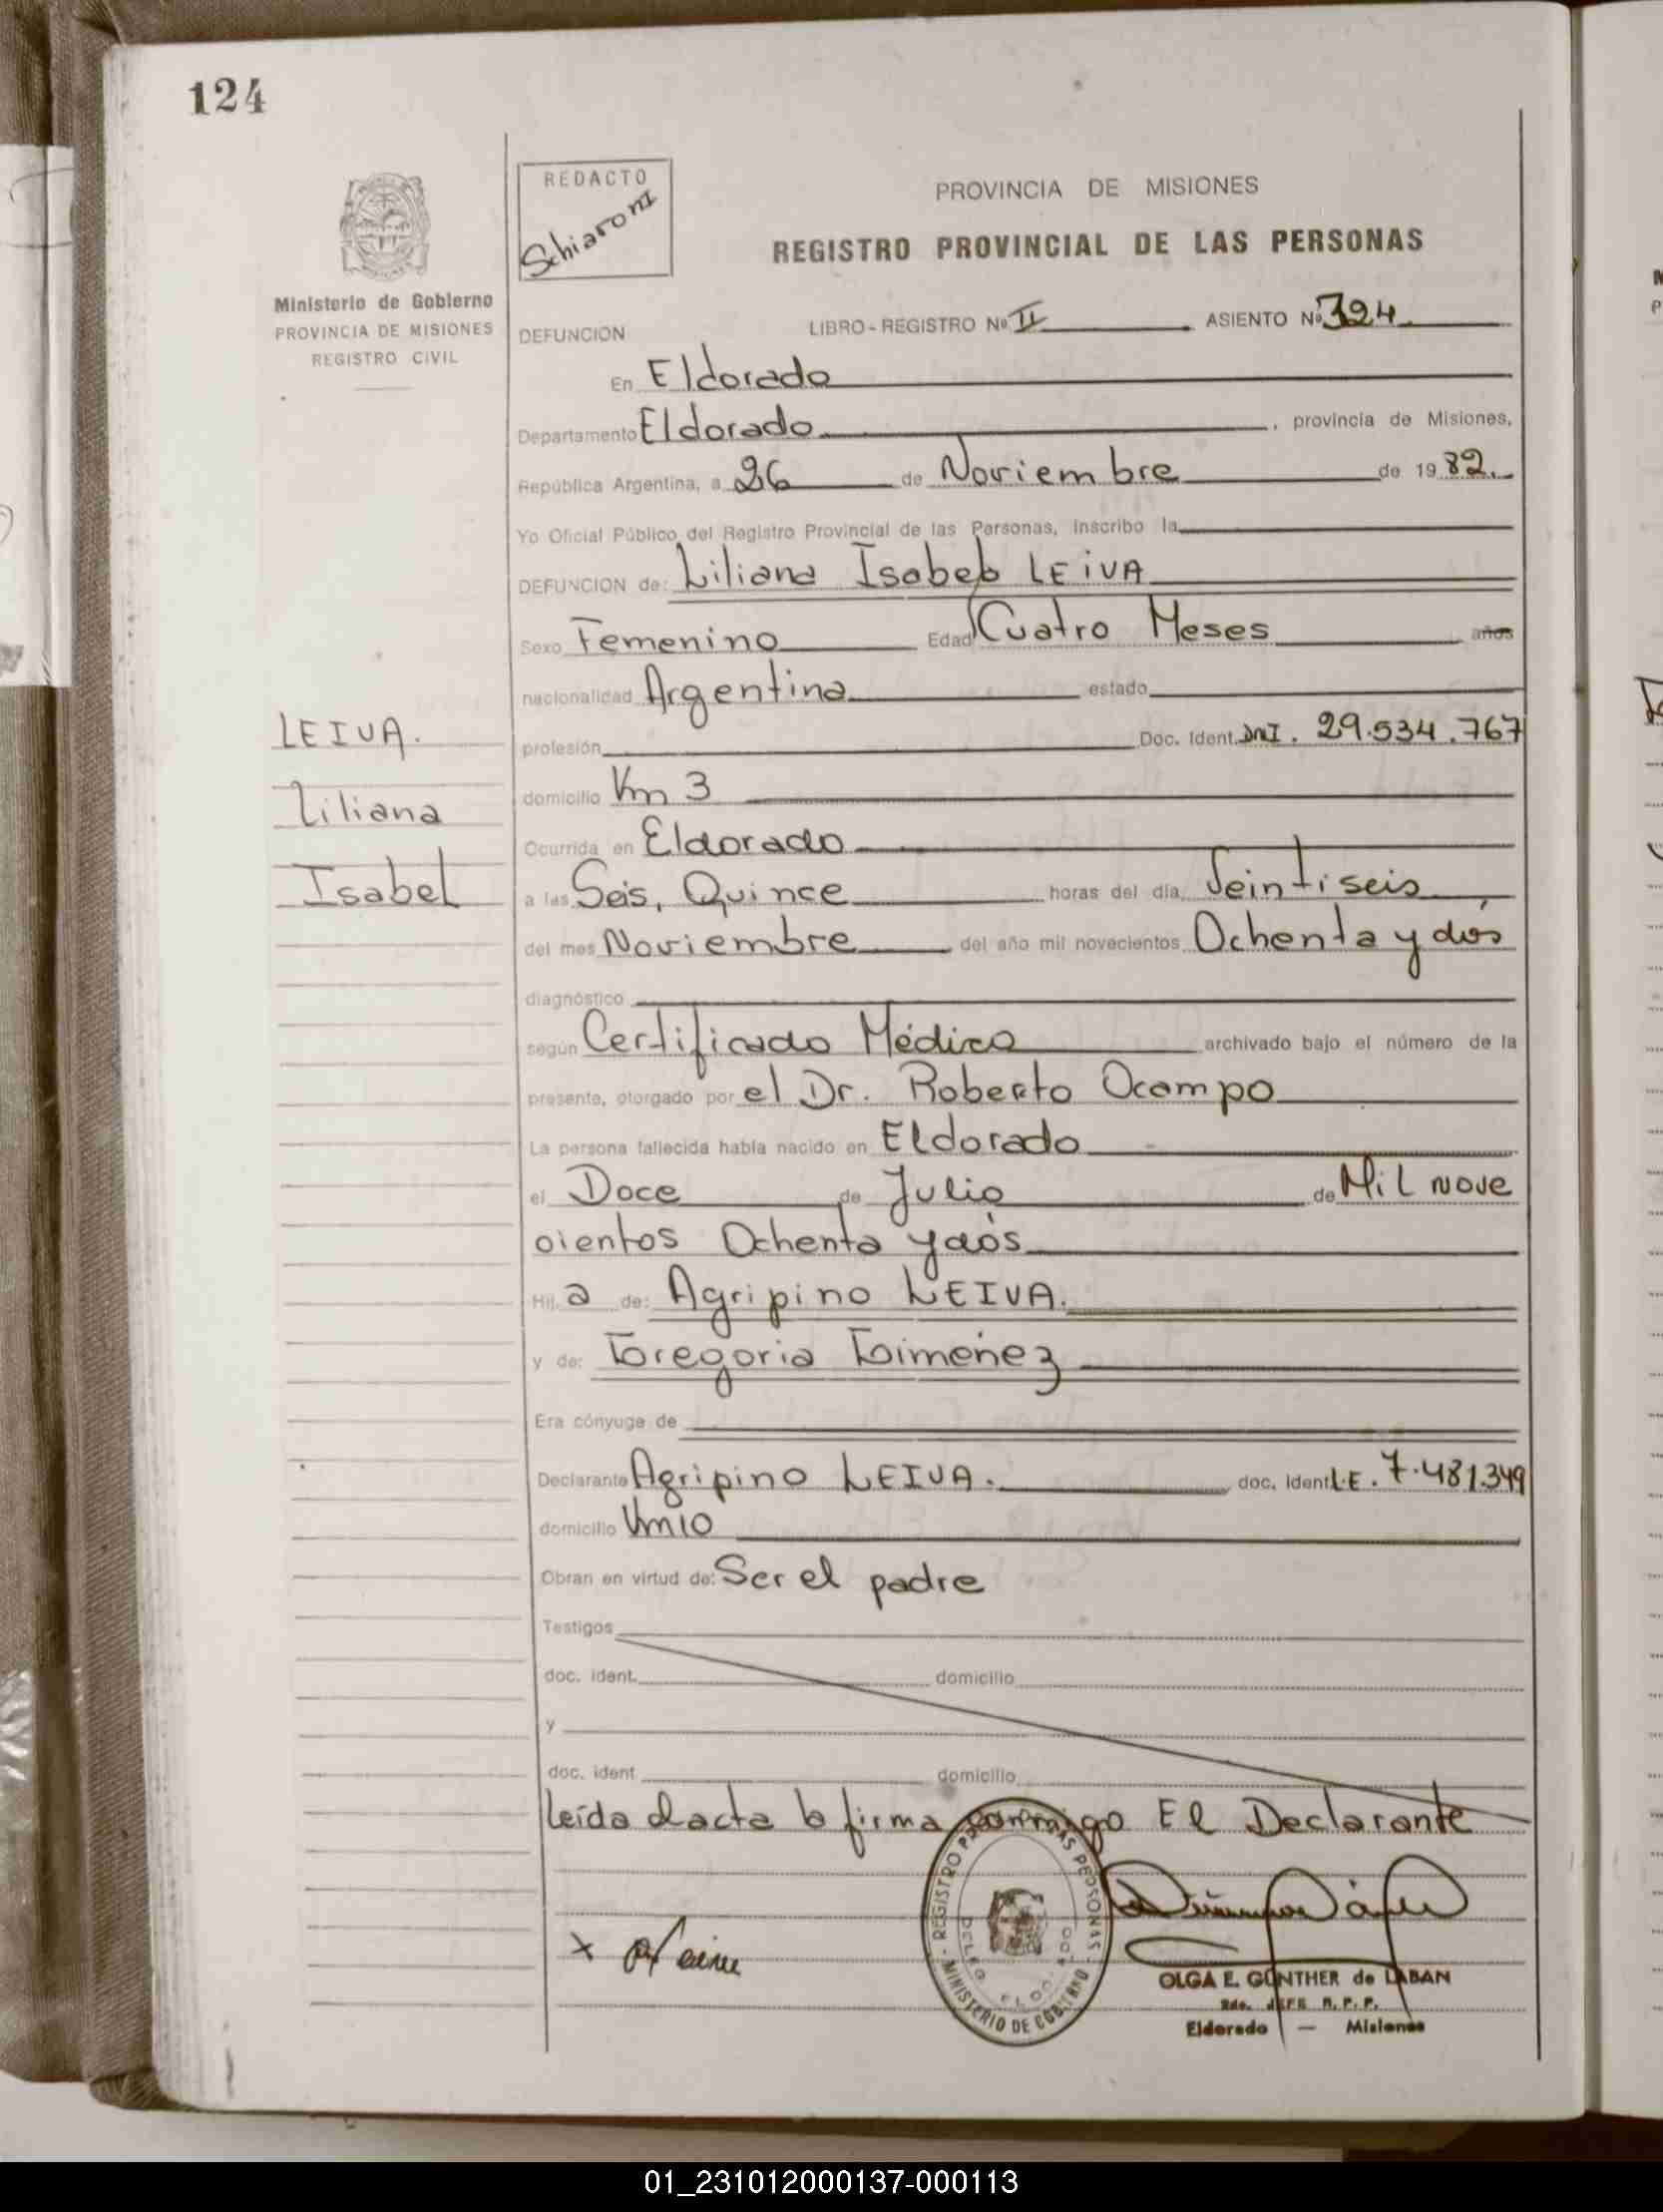 124
REDACTO
Schiaroni
PROVINCIA DE MISIONES
REGISTRO PROVINCIAL DE LAS PERSONAS
Ministerio de Gobierno
PROVINCIA DE MISIONES
REGISTRO CIVIL
DEFUNCION LIBRO-REGISTRO Nº II ASIENTO Nº 324
En Eldorado
Departamento Eldorado, provincia de Misiones,
República Argentina, a 26 de Noviembre de 1982.
Yo Oficial Público del Registro Provincial de las Personas, inscribo la
DEFUNCION de: Liliana Isabel LEIVA
Sexo Femenino Edad Cuatro Meses años
nacionalidad Argentina estado
profesión Doc. Ident. DNI. 29.534.767
LEIVA.
Liliana
Isabel
domicilio Km 3
Ocurrida en Eldorado
a las Seis, Quince horas del día Veintiseis
del mes Noviembre del año mil novecientos Ochenta y dós
diagnóstico
según Certificado Médico archivado bajo el número de la
presente, otorgado por el Dr. Roberto Ocampo
La persona fallecida había nacido en Eldorado
el Doce de Julio de Mil nove
cientos Ochenta y dós
Hij a de: Agripino LEIVA.
y de: Gregoria Gimenez
Era cónyuge de
Declarante Agripino LEIVA. doc. Ident L.E. 7.481.349
domicilio Km 10
Obran en virtud de: Ser el padre
Testigos
doc. ident. domicilio
y
doc. ident. domicilio
leída el acta la firma conmigo El Declarante
- REGISTRO PERSONAS -
MINISTERIO DE GOBIERNO
x
OLGA E. GÜNTHER de LABAN
JEFE R.P.P.
Eldorado — Misiones
01_231012000137-000113